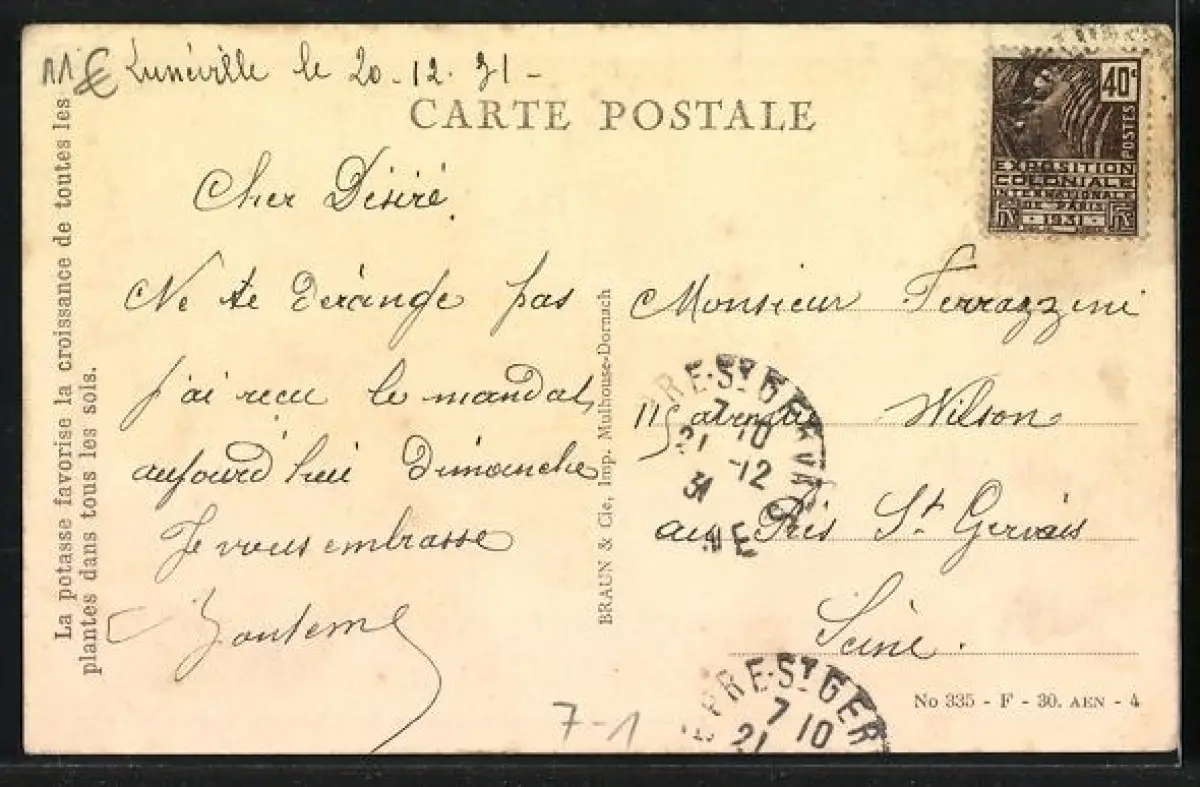 11€
Lunéville le 20-12-31-
CARTE POSTALE
40c
POSTES
EXPOSITION
COLONIALE
INTERNATIONALE
DE PARIS
· 1931 ·
Cher Désiré,
Ne te dérange pas
j'ai recu le mandat,
aujourd'hui Dimanche
Je vous embrasse
Monsieur Ferrazzini
11 avenue Wilson
au Près St Gervais
Seine.
PRE-ST GERVAIS
7 10
21 -12
31
NE
PRE-ST GER
7 10
21
7-1
No 335 - F - 30. AEN - 4
La potasse favorise la croissance de toutes les
plantes dans tous les sols.
BRAUN & Cie, Imp. Mulhouse-Dornach